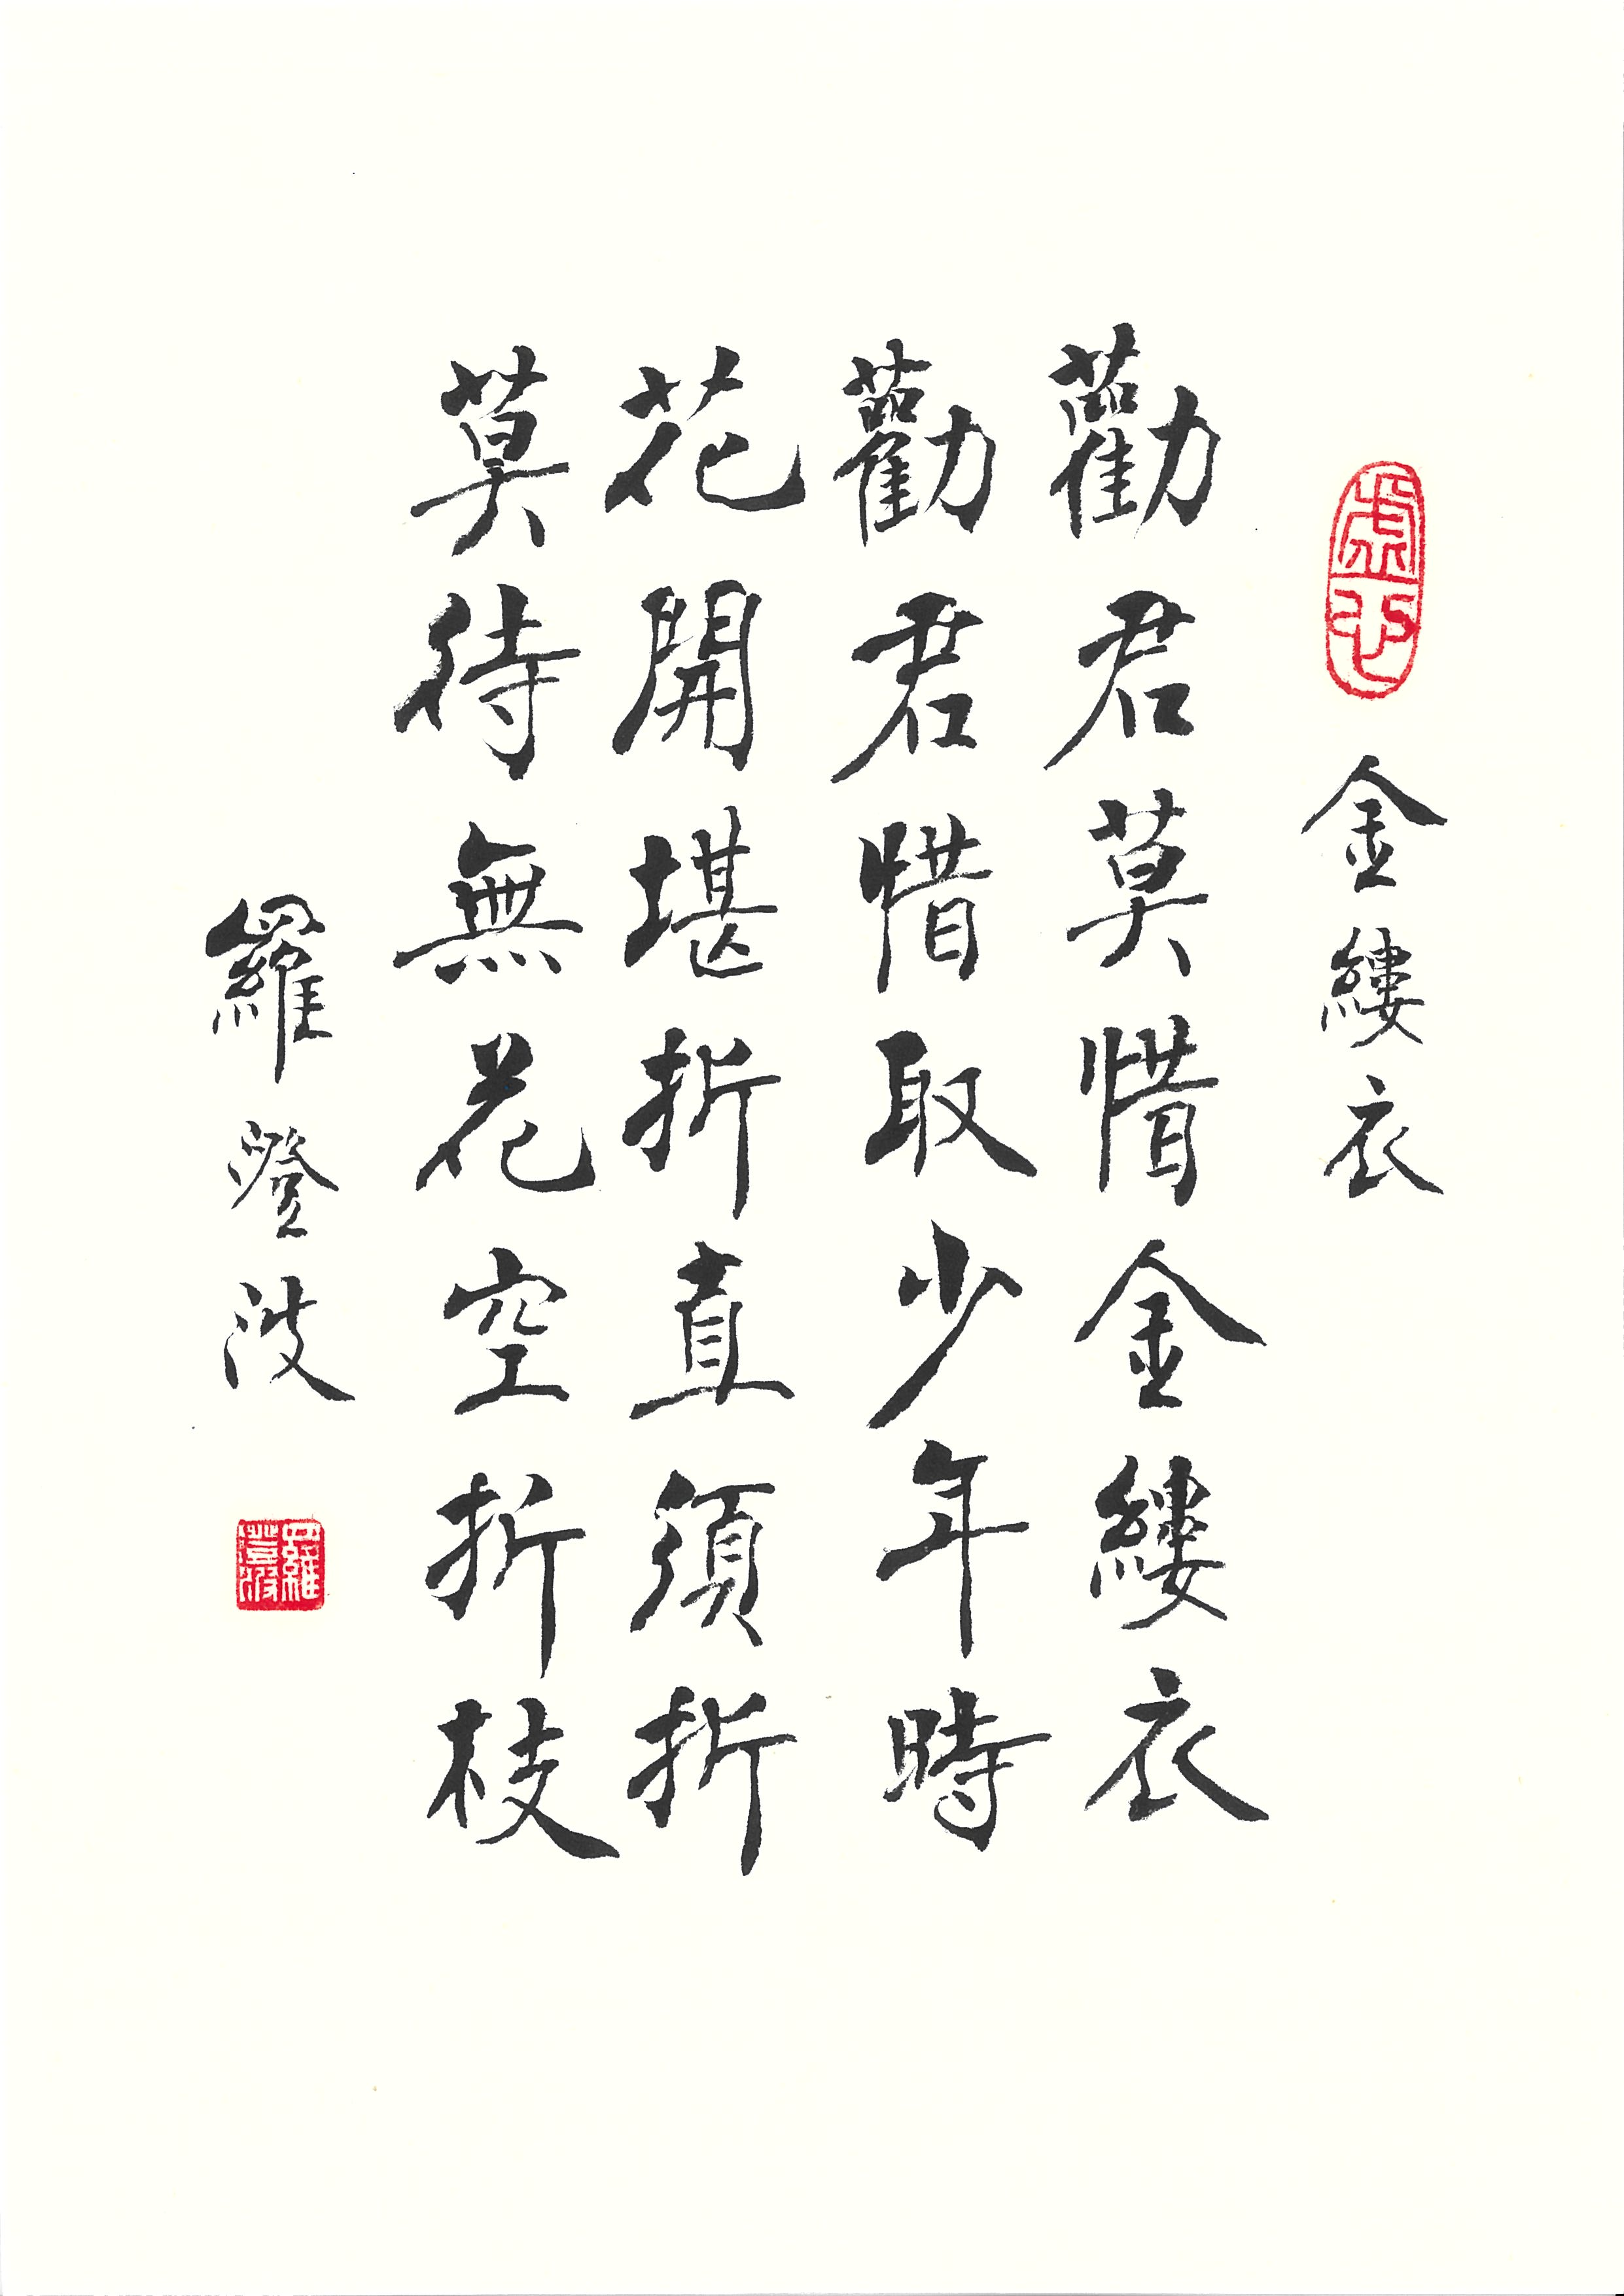 虛心
金縷衣
勸君莫惜金縷衣
勸君惜取少年時
花開堪折直須折
莫待無花空折枝
羅澄波
羅澄波